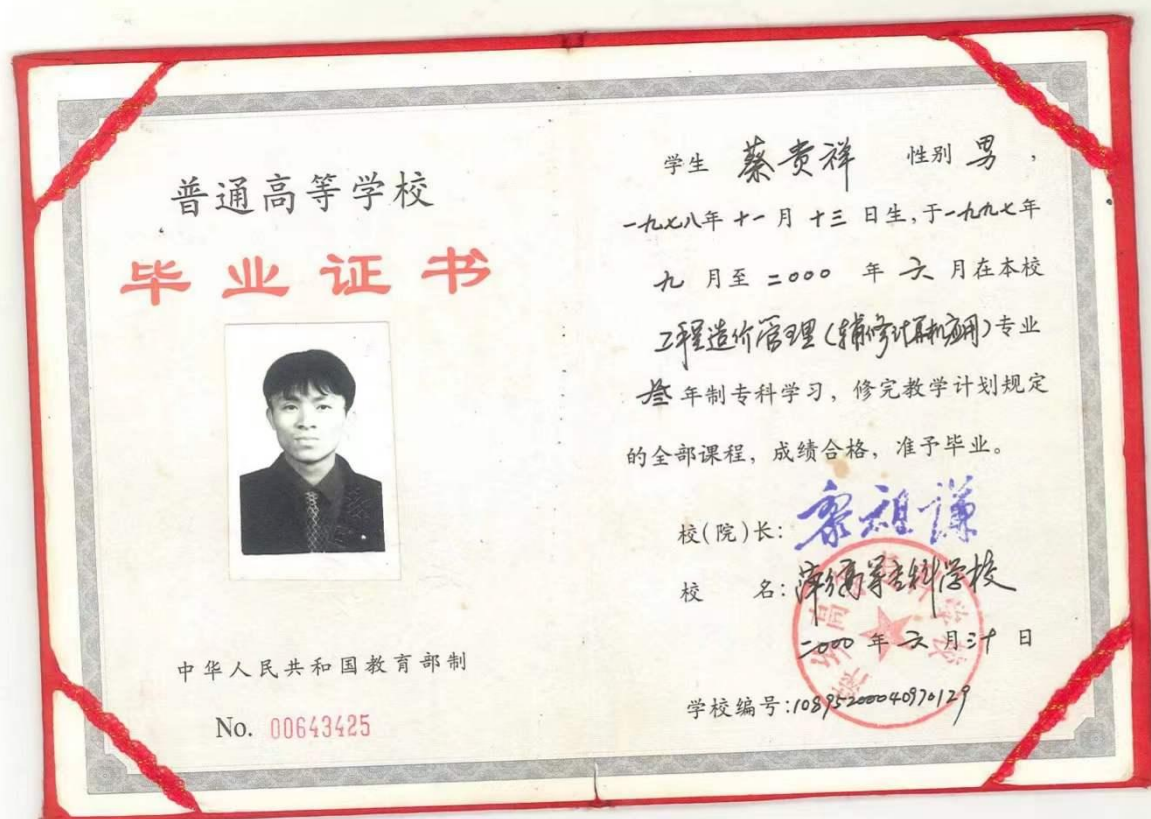 普通高等学校
毕业证书
中华人民共和国教育部制
No. 00643425
学生 蔡贵祥 性别 男,
一九七八年十一月十三日生,于一九九七年
九月至二000年六月在本校
工程造价管理(辅修计算机应用)专业
叁年制专科学习,修完教学计划规定
的全部课程,成绩合格,准予毕业。
校(院)长:黎祖谦
校 名:萍乡高等专科学校
二000年六月三十日
学校编号:108952000040970129